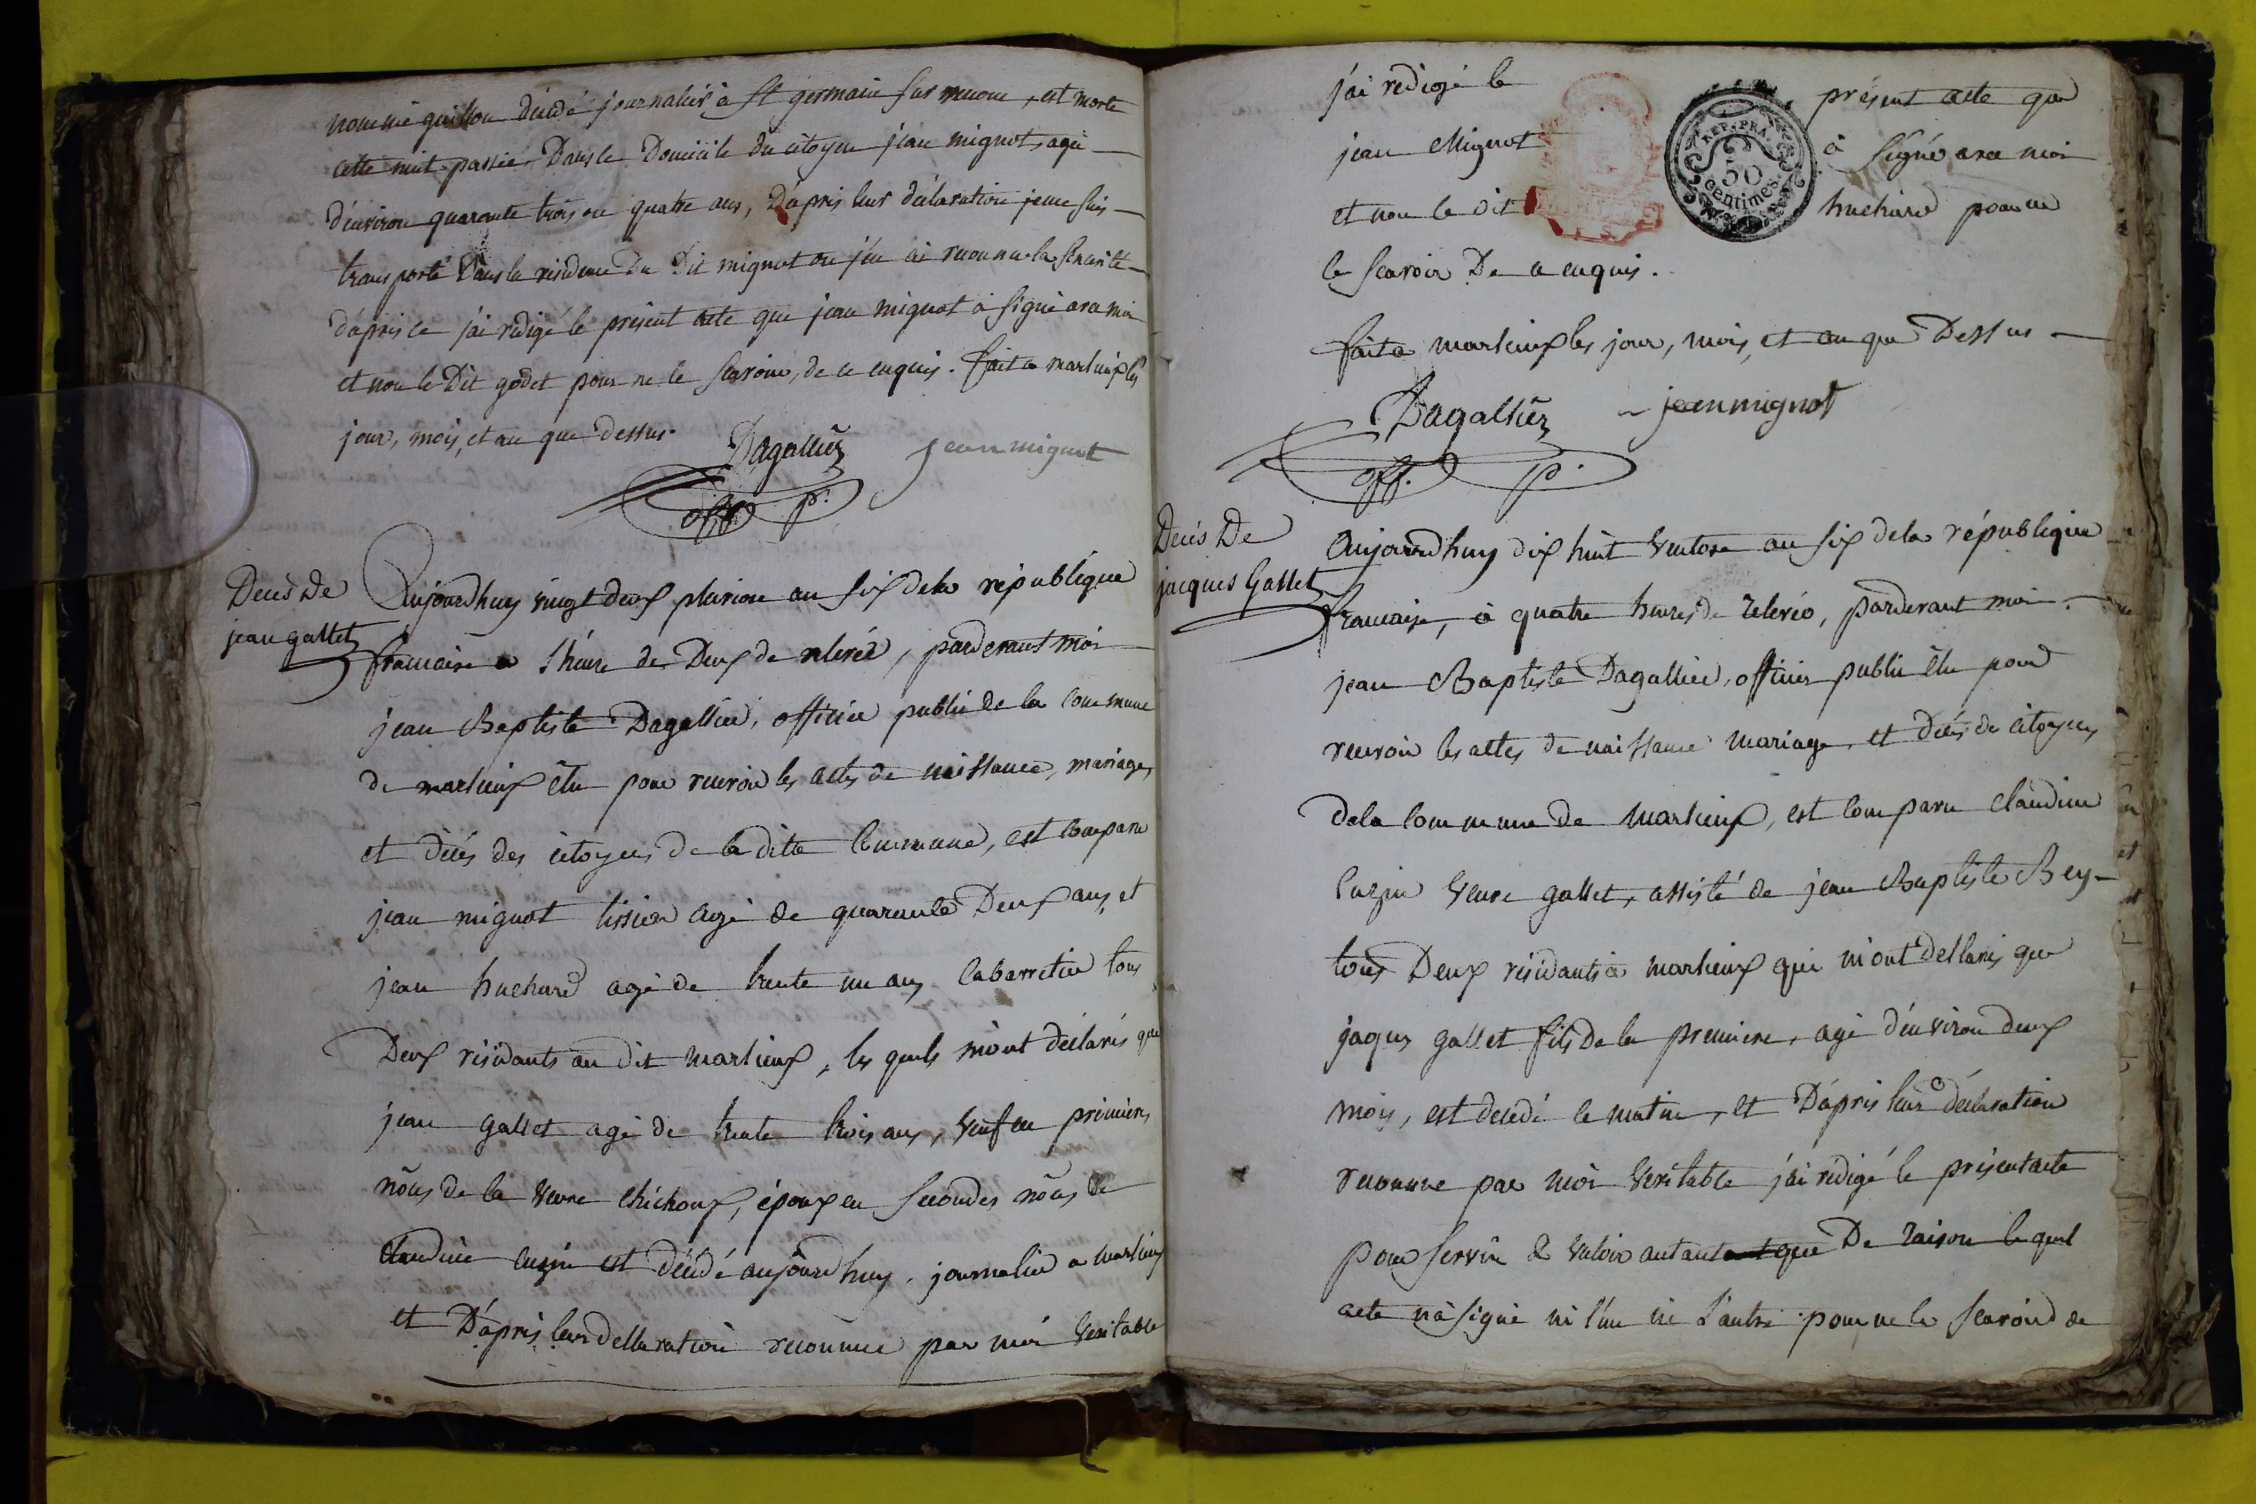 nommé guillon décédé journalier à St germain sur renom, est morte
cette nuit passée, Dans le Domicile du citoyen jean mignot, agé
d'environ quarante trois ou quatre ans, D'après leur déclaration je me suis
transporté Dans la residence du Dit mignot ou j'en ai reconnu la sincerité
d'après ce j'ai redigé le présent acte que jean mignot à signé avec moi
et non le Dit godet pour ne le scavoir, de ce enquis. fait a marlieux les
jour, mois, et an que dessus.
Dagallier jean mignot
off. p.
Decès De
jean gallet
Aujourdhuy vingt deux pluviose an six de la république
francaise a l'heure de Deux de relevée, pardevant moi
jean Baptiste Dagallier, officier public de la commune
de marlieux élu pour recevoir les actes de naissance, mariages,
et décés des citoyens de la dite Commune, est comparu
jean mignot tissier agé de quarante Deux ans, et
jean huchard agé de trente un ans Cabarretier tous
Deux résidants au dit marlieux, les quels m'ont déclarés que
jean gallet agé de trente trois ans, veuf en premieres
nôces de la veuve chichoux, époux en secondes nôces de
claudine cuzin est décédé aujourdhuy, journalier a marlieux
et D'après leur dellaration reconnue par moi veritable
j'ai redigé le présent acte que
jean Mignot à signé avec moi
et non le dit huchard pour ne
le scavoir De ce enquis.
REP. FRA.
50
centimes
fait a marlieux les jour, mois, et an que Dessus
Dagallier jean mignot
off. p.
Decés De
jacques Gallet
Aujourdhuy dix huit ventose an six de la république
francaise, à quatre heures de relevée, pardevant moi
jean Baptiste Dagallier, officier public élu pour
recevoir les actes de naissance mariage, et décés de citoyens
de la commune de marlieux, est comparu claudine
Cuzin veuve gallet, assisté de jean Baptiste Rey
tous Deux résidants à marlieux qui m'ont dellarés que
jaques gallet fils de la premiere, agé d'environ deux
mois, est decedé ce matin, et D'après leur déclaration
reconnue par moi veritable j'ai redigé le présent acte
pour servir & valoir autant que De raison le quel
acte n'à signé ni l'un ni l'autre pour ne le scavoir de